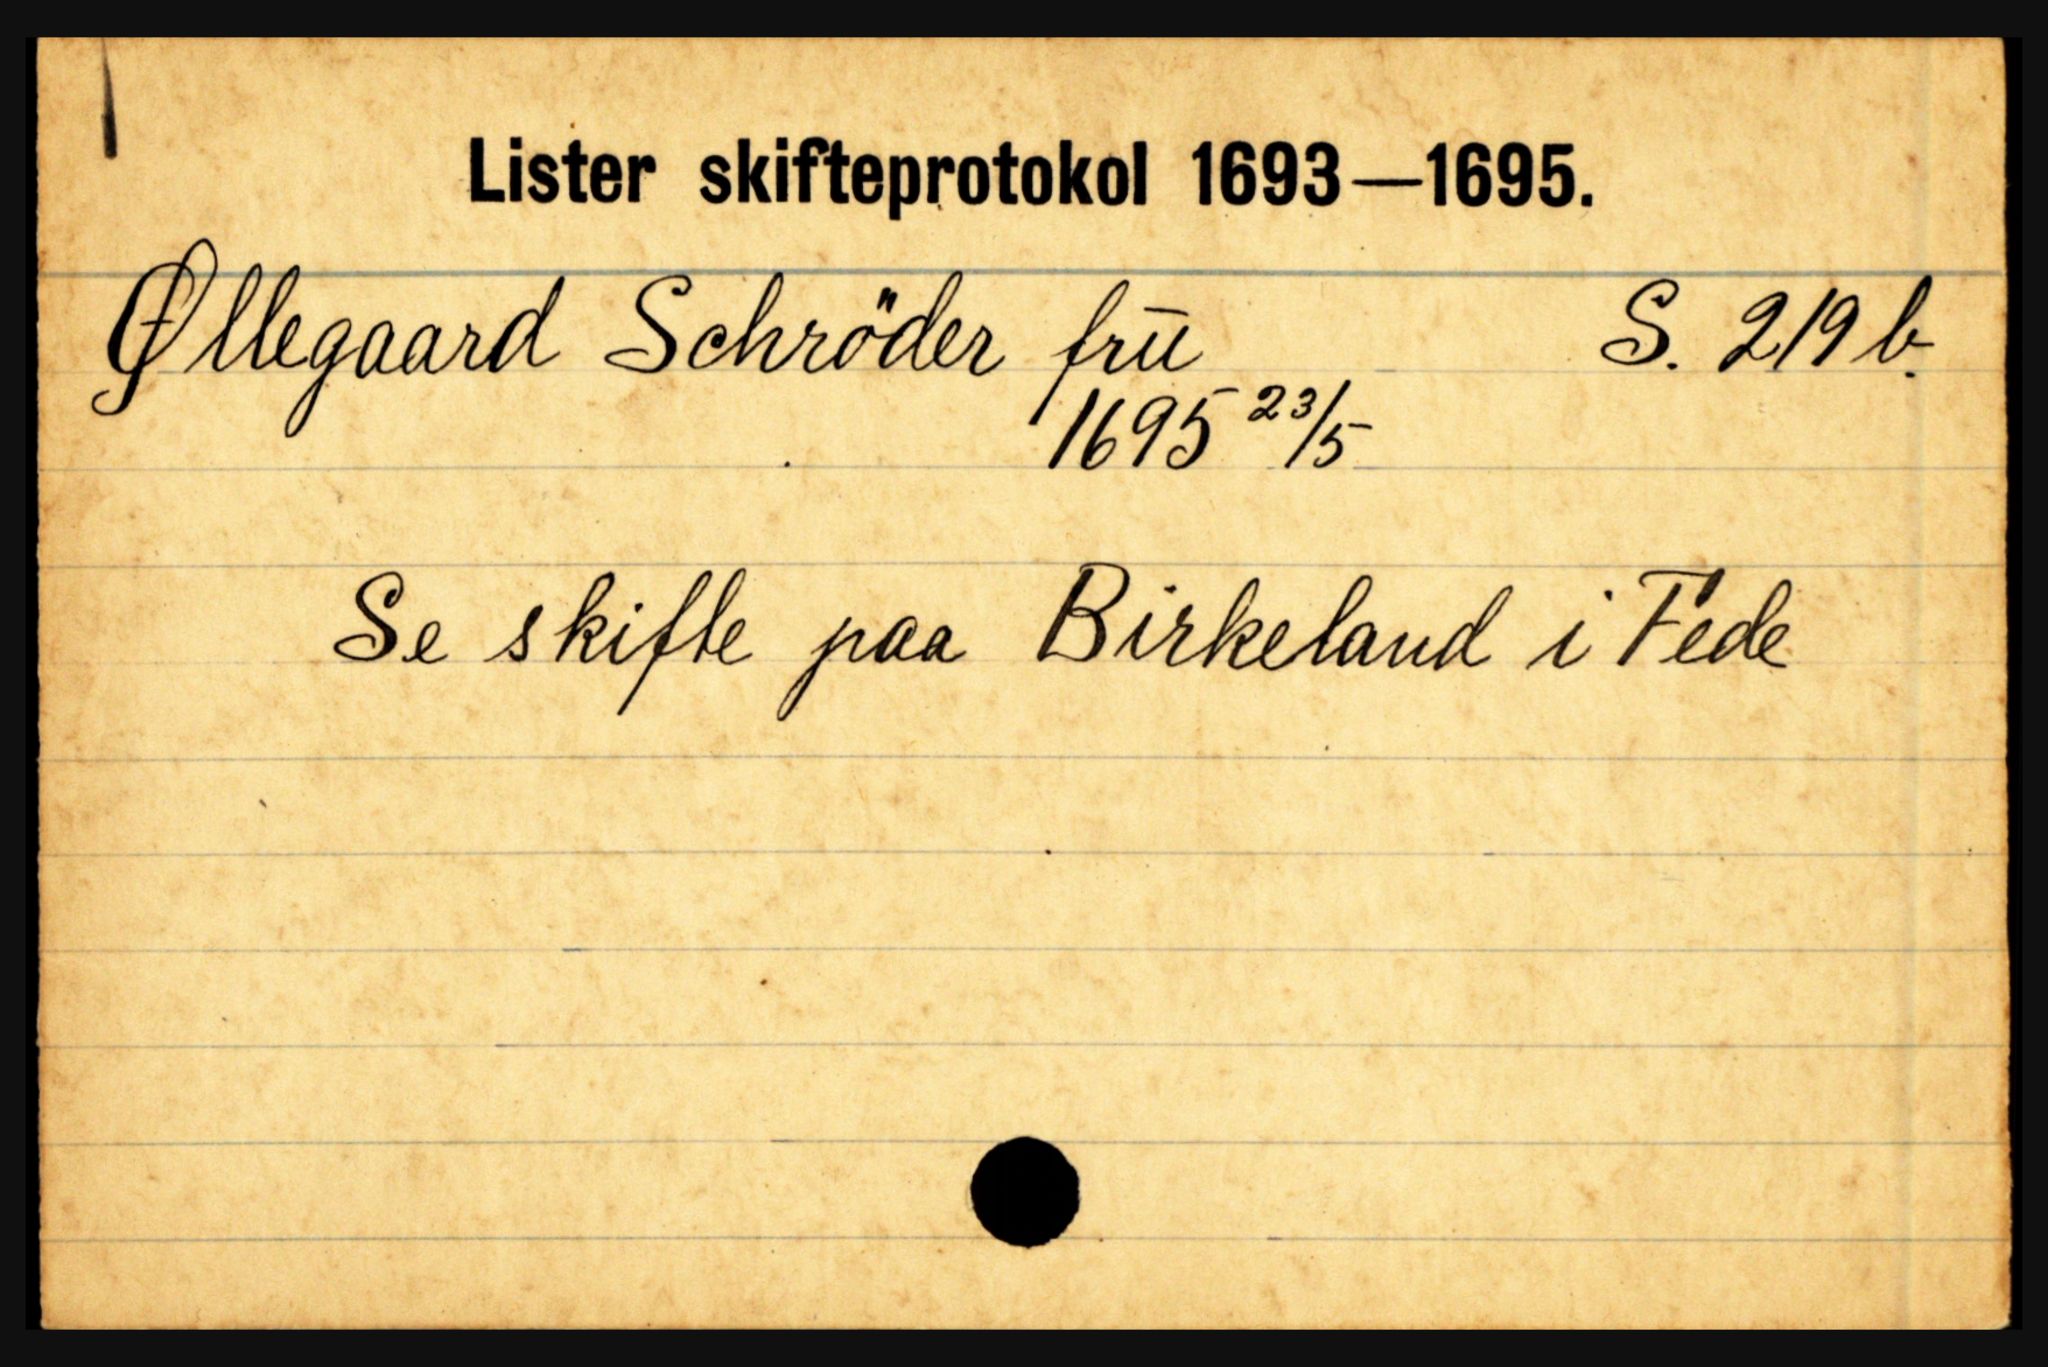 Lister skifteprotokol 1693—1695.
Øllegaard Schröder frū S. 219 b.
1695 23/5
Se skifte paa Birkeland i Fede